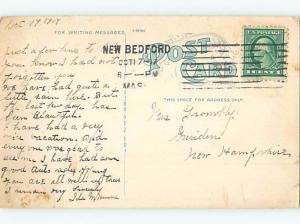 Oct 17 1917
FOR WRITING MESSAGES
Just a few lines to let
you know I had not
forgotten you
We have had quite a
little rain here. But
the last few days has
been Beautiful.
I have had a very
nice vacation. And
every one was glad to
see me. I have had some
good Auto rides. Hoping
you are all well
I remain very Sincerely
NEW BEDFORD
OCT 17
6 - PM
MASS
POST
CARD
THIS SPACE FOR ADDRESS ONLY.
U.S. POSTAGE
1 CENT 1
New Hampshire